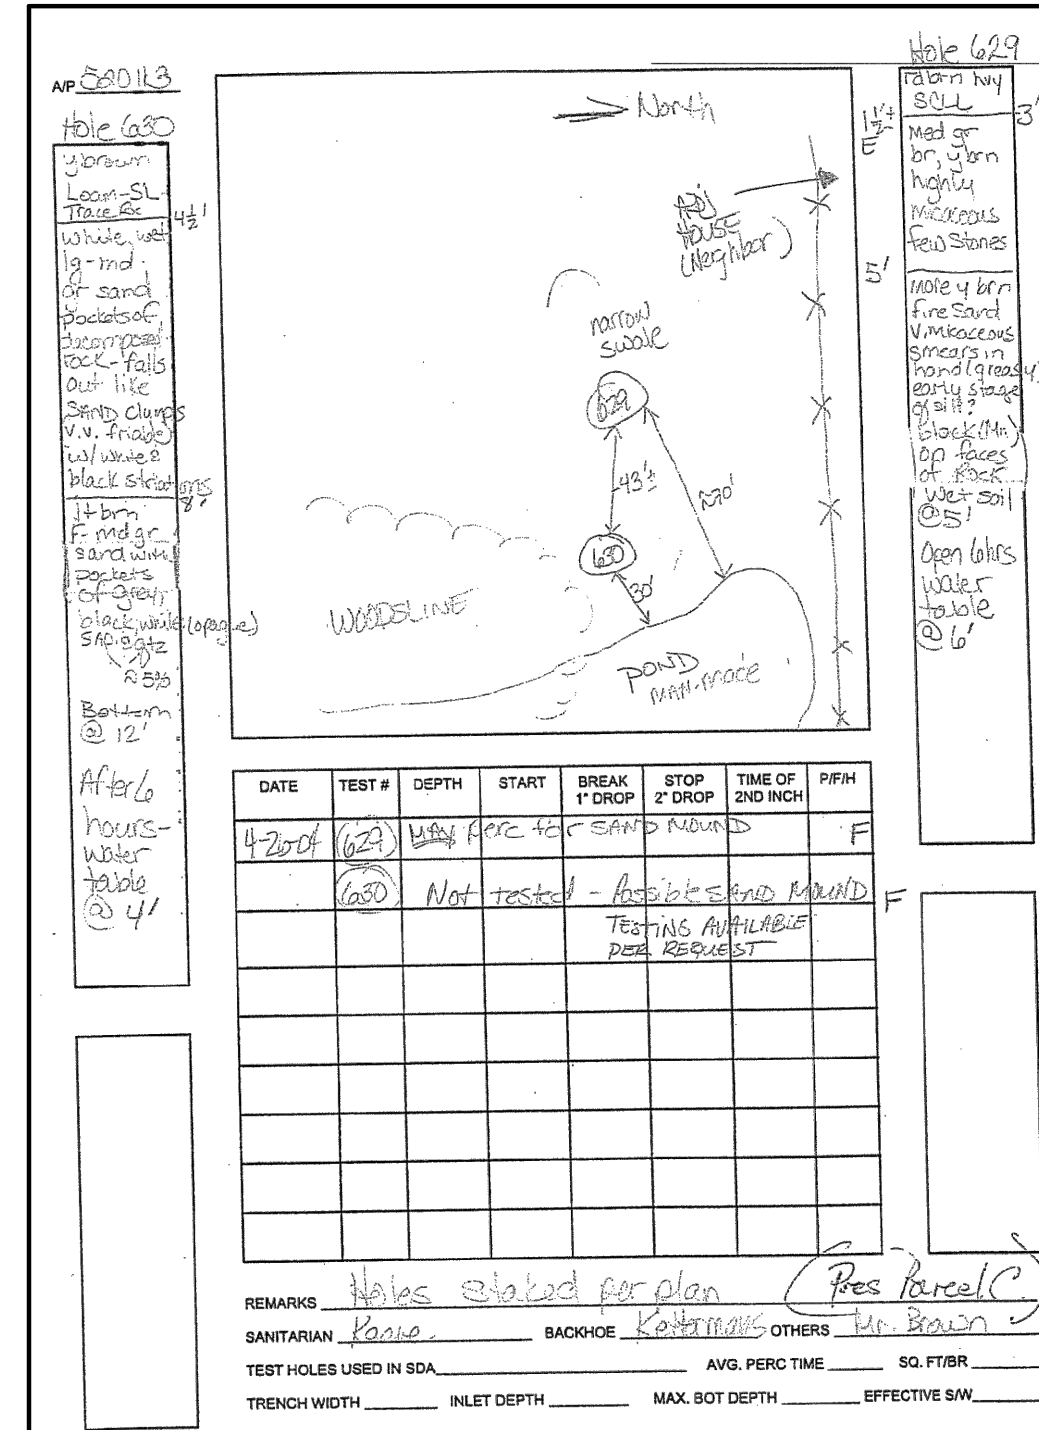 A/P 520113
Hole 630
y brown
Loam-SL
Trace Rx
4½'
white, wet
lg-md
gr sand
pockets of
decomposed
rock-falls
out like
SAND clumps
v.v. friable
w/ white &
black striations
8'
lt brn
F-md gr
sand with
pockets
of grey,
black, white (opaque)
qtz
≈5%
Bottom
@ 12'
After 6
hours-
water
table
@ 4'
North
ADJ
HOUSE
(Neighbor)
narrow
swale
629
43'±
≈70'
630
30'
WOODSLINE
POND
MAN-MADE
Hole 629
rd brn hvy
SCLL
3'
1½'±
E
Med gr
br, y brn
highly
micaceous
few stones
5'
more y brn
fine sand
V. micaceous
smears in
hand (greasy)
early stage
of silt?
black (Mn)
on faces
of Rock
Wet soil
@ 5'
Open 6hrs
water
table
@ 6'
DATE TEST # DEPTH START BREAK 1" DROP STOP 2" DROP TIME OF 2ND INCH P/F/H
4-26-04 (629) MAY perc for SAND MOUND F
(630) Not tested - Possible SAND MOUND F
TESTING AVAILABLE
PER REQUEST
REMARKS Holes staked per plan (Pres Parcel C)
SANITARIAN BACKHOE OTHERS Mr. Brown
TEST HOLES USED IN SDA AVG. PERC TIME SQ. FT/BR
TRENCH WIDTH INLET DEPTH MAX. BOT DEPTH EFFECTIVE S/W